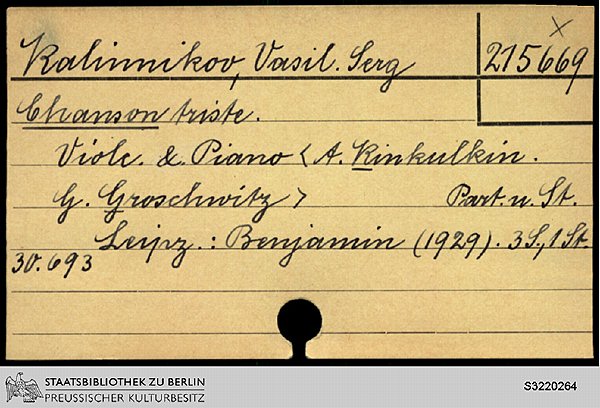 x
Kalinnikov, Vasil. Serg 215669
Chanson triste.
Violc. & Piano < A. Kinkulkin.
G. Groschwitz > Part. u. St.
Leipz.: Benjamin (1929). 3 S., 1 St.
30.693
STAATSBIBLIOTHEK ZU BERLIN
PREUSSISCHER KULTURBESITZ
S3220264